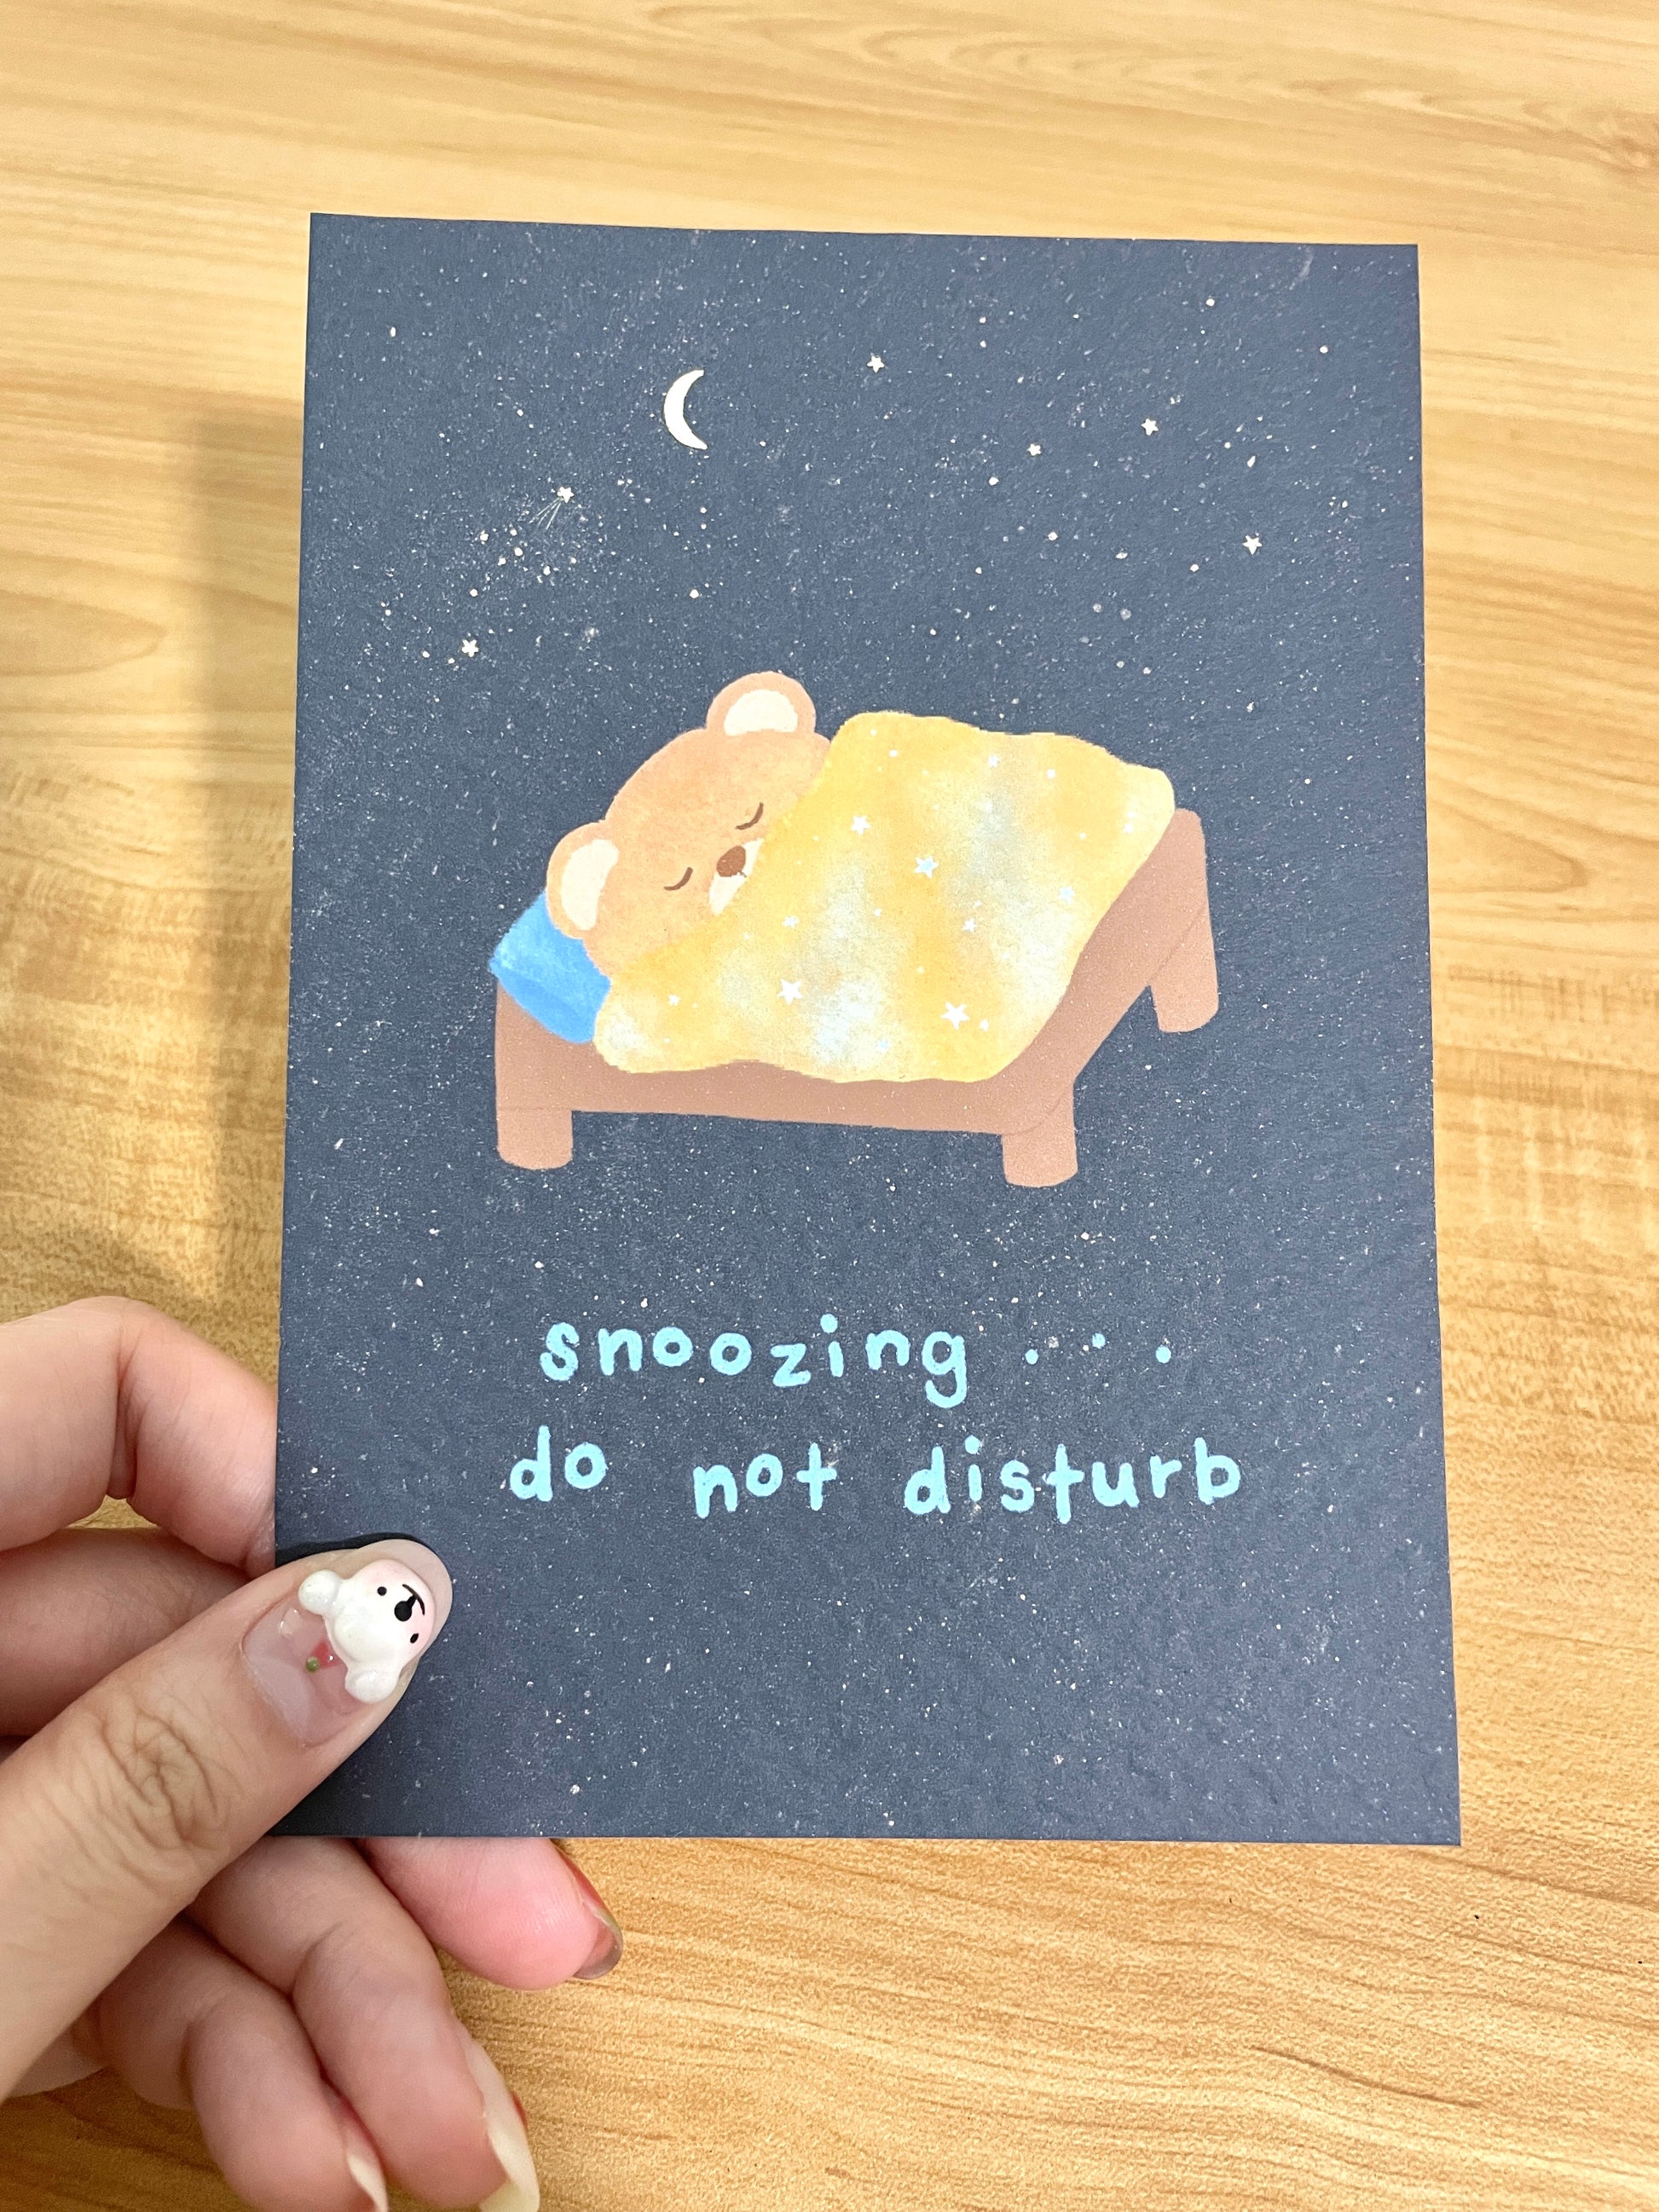 snoozing...
do not disturb